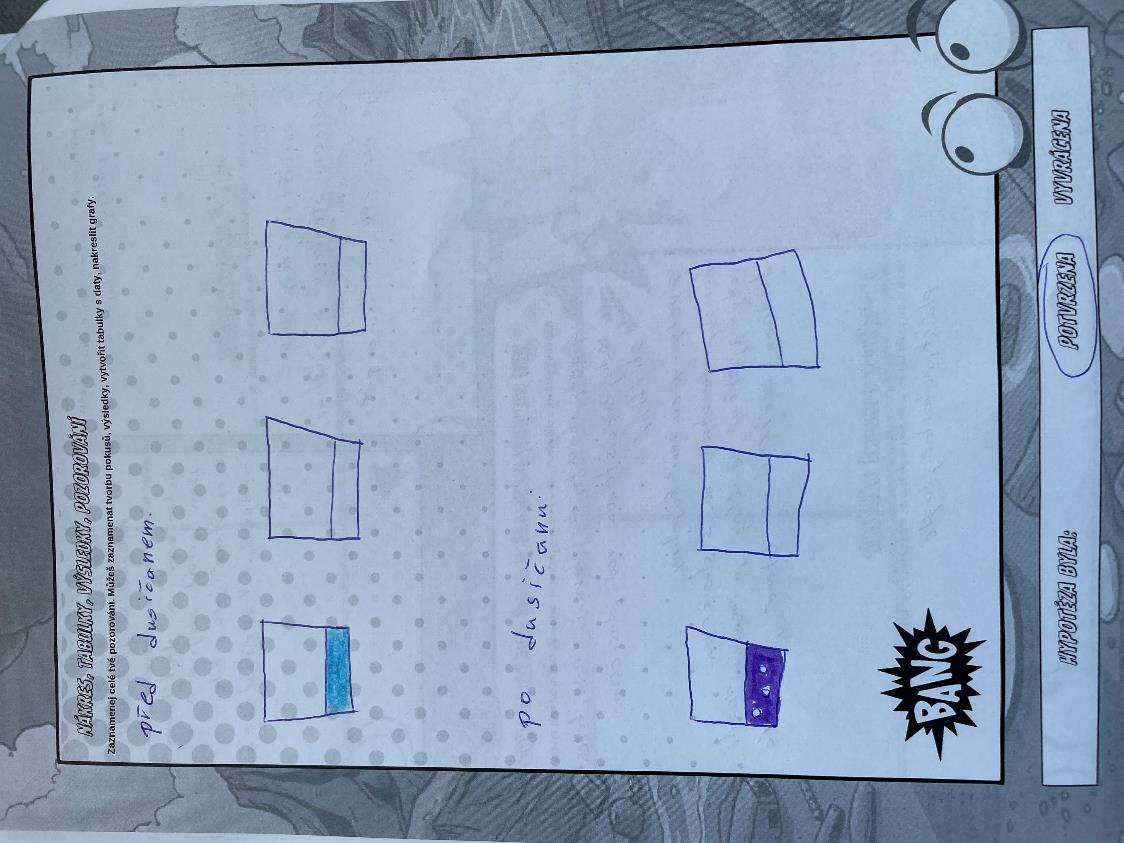 NÁKRES, TABULKY, VÝSLEDKY, POZOROVÁNÍ
Zaznamenej celé tvé pozorování. Můžeš zaznamenat tvorbu pokusů, výsledky, vytvořit tabulky s daty, nakreslit grafy.
před dusičanem.
po dusičanu.
BANG
HYPOTÉZA BYLA: POTVRZENA VYVRÁCENA